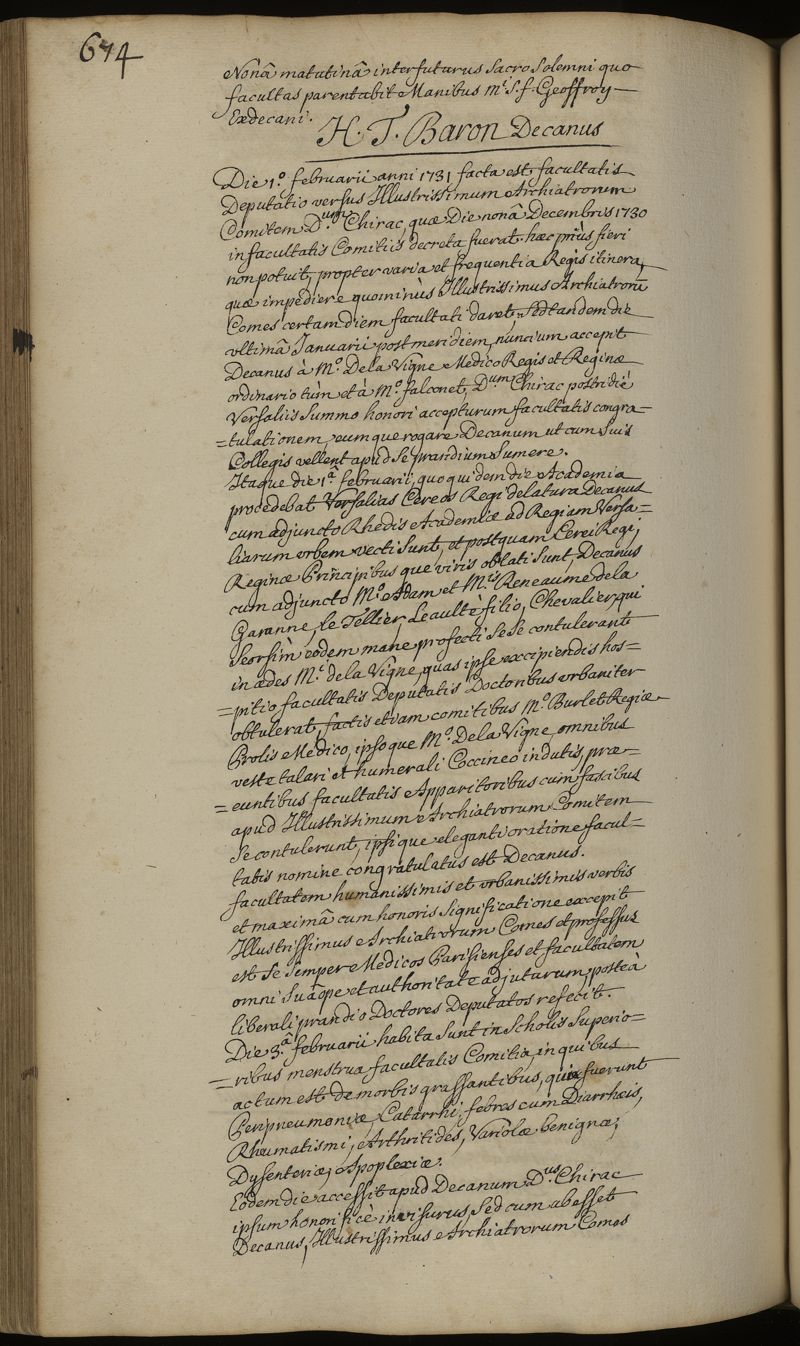 674
Nonâ matutinâ interfuturus Sacro Solemni quo
facultas parentabit Manibus M.i S. f. Geoffroy
Exdecani.
H. T. Baron Decanus
Die 1.º februarii anni 1731 facta est facultatis
Deputatio versus Illustrissimum Archiatrorum
Comitem D.um Chirac, quæ Die nonâ Decembris 1730
in facultatis Comitiis decreta fuerat. hæc priùs fieri
non potuit, propter varia et frequentia Regis itinera,
quæ impediere quominùs Illustrissimus Archiatrorū
Comes certam diem facultati daret, Sed tandem die
ultimâ Januarii post meridiem, nuncium accepit
Decanus à M.º De la Vigne Medico Regis et Reginæ
ordinario tùm et à M.º falconet, D.um Chirac postridiè
Versaliis Summo honori accepturum facultatis congra=
=tulationem, eumque rogare Decanum ut cum Suis
Collegis vellent apud Se prandium Sumere.
Itaque die 1.ª februarii, quo quidem die Academia
procedebat Versalias Cereos Regi delatura Decanus
cum adjuncto Rhedis Academiæ ad Regiam Versa=
liarum urbem vecti Sunt, et postquam Cerei Regi,
Reginæ Principibusque viris oblati Sunt, Decanus
cum adjuncto M.º Adam et M.is Reneaume de la
Garanne, le Tellier, Leaultè filio, Chevalier, qui
Seorsìm eodem mane profecti Sese contulerant
in ædes M.i de la Vigne, quas ipse excipiendis hos=
=pitio facultatis Deputatis Doctoribus urbaniter
obtulerat, factis etiam comitibus M.º Burlet Regiæ
Prolis Medico, ipsoque M.º De la Vigne, omnibus
veste talari et humerali Coccineo indutis, præ=
=euntibus facultatis Apparitoribus cum fascibus
apud Illustrissimum Archiatrorum Comitem
Se contulerunt, ipsique eleganti oratione facul=
tatis nomine congratulatus est Decanus.
facultatem humanissimis et urbanissimis verbis
et maximâ cum honoris Significatione excepit
Illustrissimus Archiatrorum Comes et professus
est Se Semper Medicos Parisienses et facultatem
omni Suâ ope et authoritate adjuturum, posteà
liberali prandio Doctores Deputatos refecit.
Die 3.ª februarii habita Sunt in Scholis Superio=
=ribus menstrua facultatis Comitia, in quibus
actum est de morbis grassantibus, qui fuerunt
Peripneumoniæ, Catarrhi, febres cum Diarrhœis,
Rheumatismi, Arthritides, Variolæ benignæ,
Dysenteriæ, Apoplexiæ.
Eodem die accessit apud Decanum D.us Chirac
ipsum honorificè invisurus, Sed cum abesset
Decanus, Illustrissimus Archiatrorum Comes